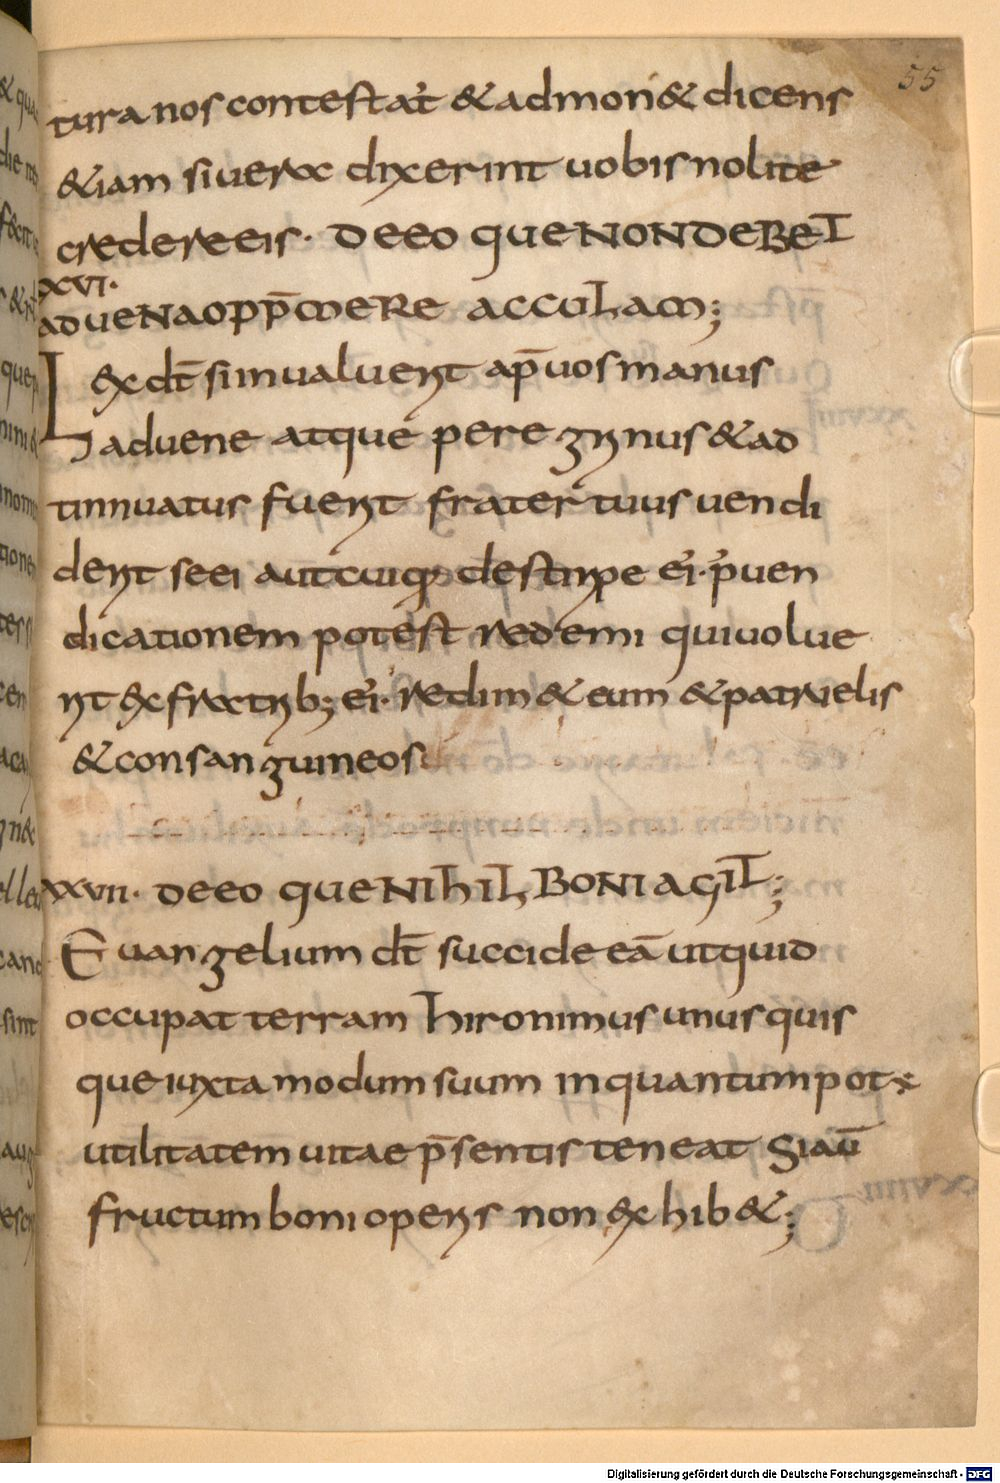 55
tura nos contestat̄ & admon& dicens
&iam si uera dixerint uobis nolite
credere eis. DE EO QUE NON DEBET
XXVI.
ADUENA OPP̄MERE ACCOLAM;
Lex dt̄ si inualuerit ap̄ uos manus
aduene atque peregrinus & ad
tinuatus fuerit frater tuus uendi
derit se ei aut cuiq; de stirpe ei'. p' uen
dicationem potest redemi qui uolue
rit ex fratrib; ei'. redim& eum & patruelis
& consanguineos
XXVII. DE EO QUE NIHIL BONI AGIT;
Euangelium dt̄ succide eā ut quid
occupat terram hironimus unus quis
que iuxta modum suum in quantum potẽ
utilitatem uitae p̄sentis teneat si aū
fructum boni operis non exhib&;
Digitalisierung gefördert durch die Deutsche Forschungsgemeinschaft - DFG